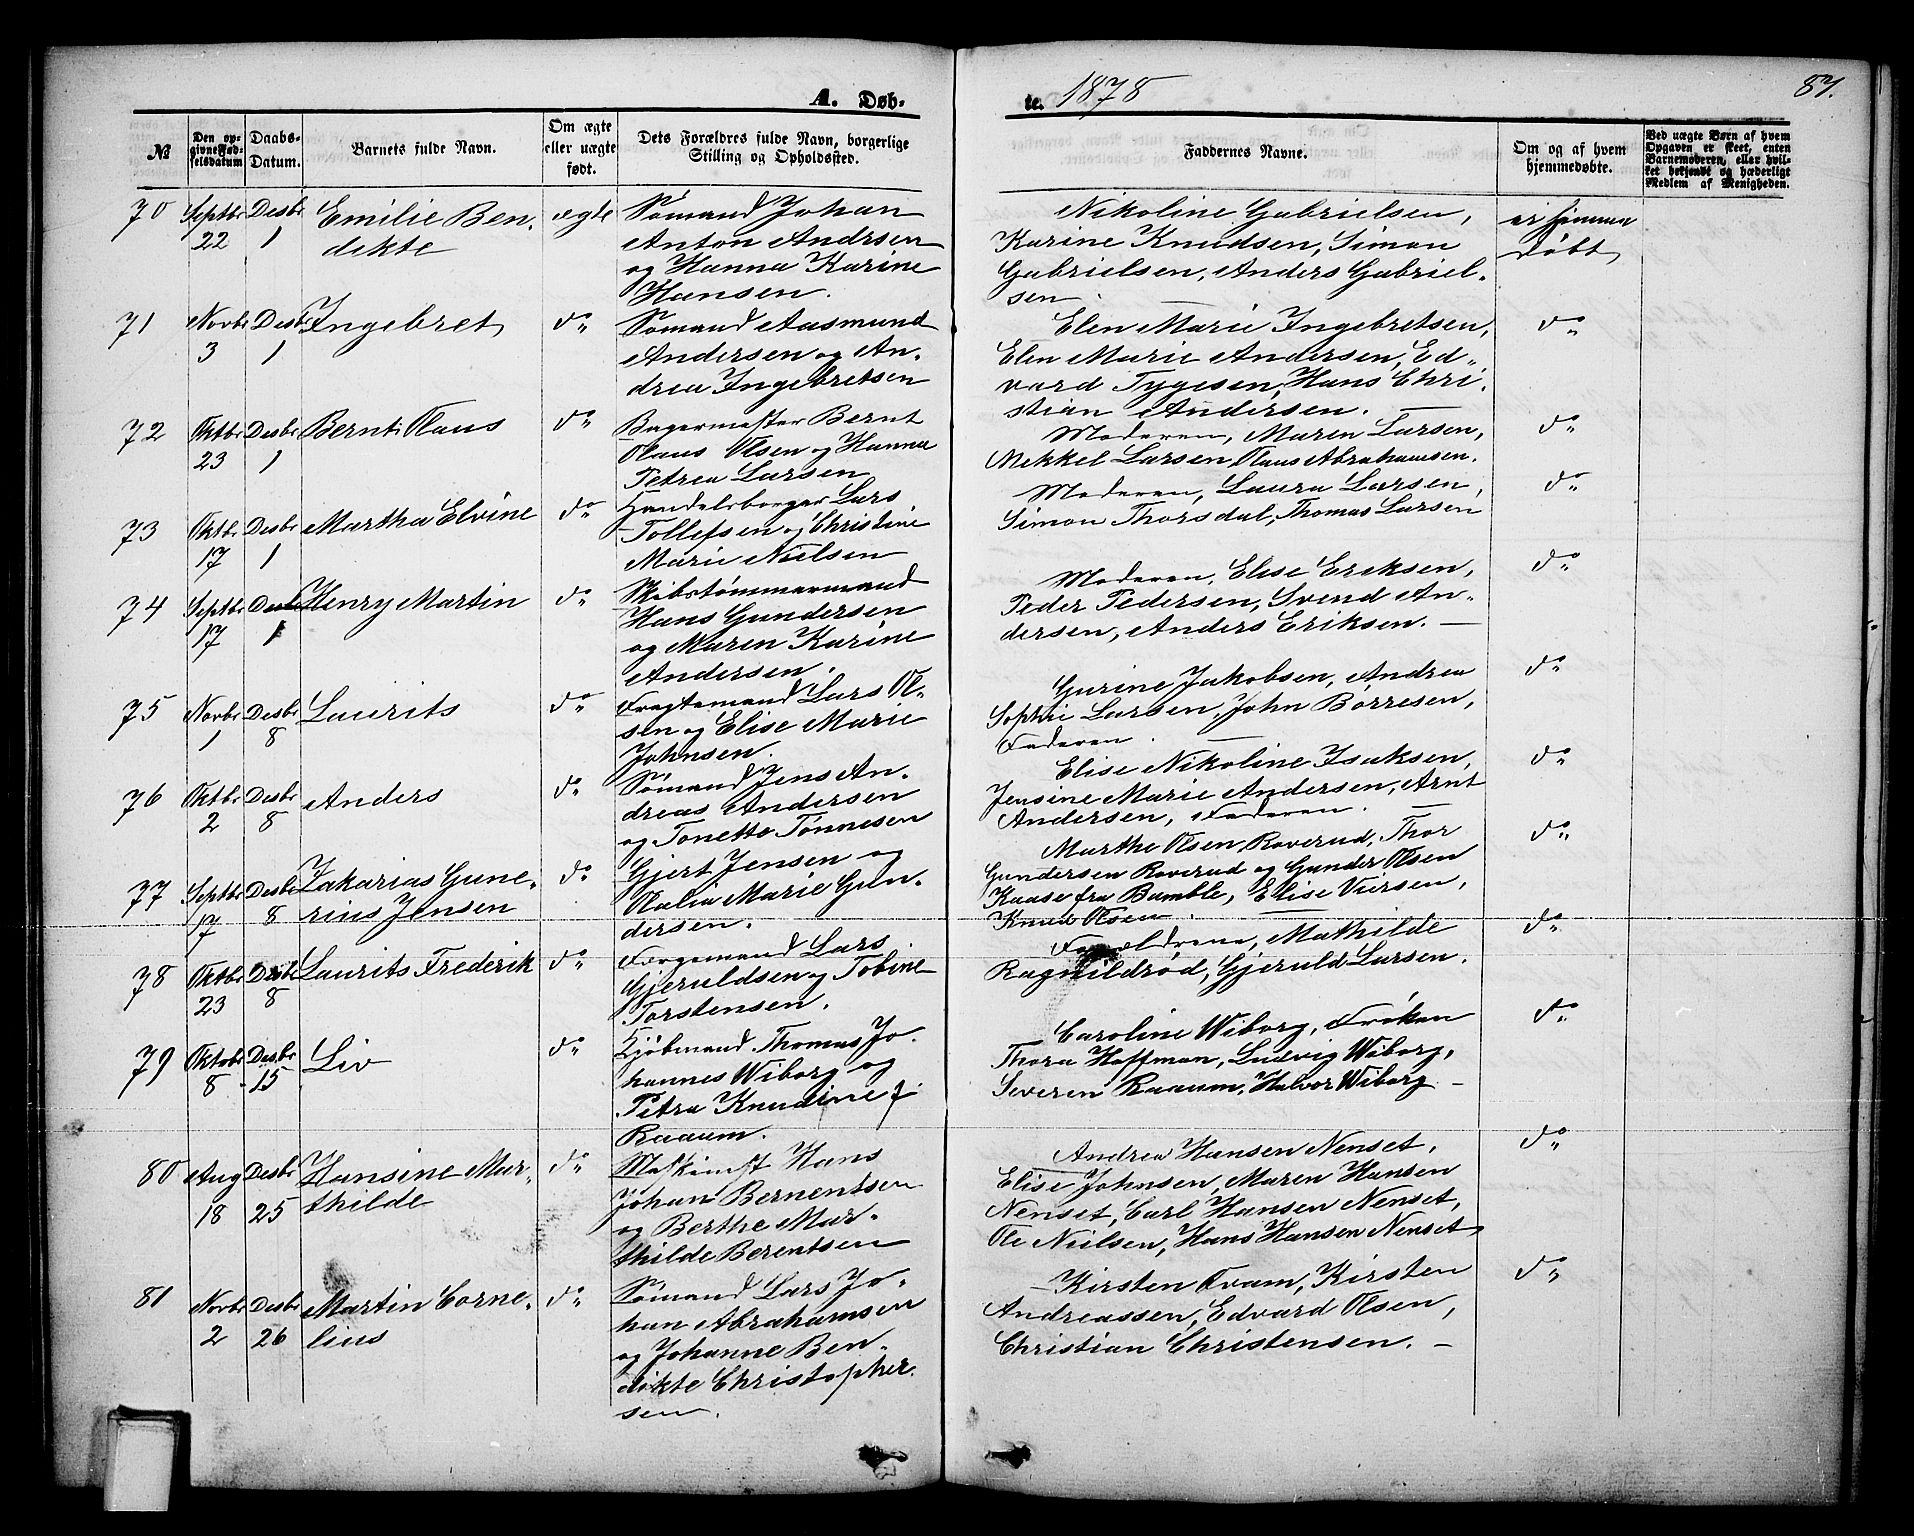 A. Døb-
te. 1878
87.
№
Den op-
givne Fød-
selsdatum
Daabs-
Datum.
Barnets fulde Navn.
Om ægte
eller uægte
født.
Dets Forældres fulde Navn, borgerlige
Stilling og Opholdssted.
Faddernes Navne.
Om og af hvem
hjemmedøbte.
Ved uægte Børn af hvem
Opgaven er skeet, enten
Barnemoderen, eller hvil-
ket bekjendt og hæderligt
Medlem af Menigheden.
70 Septbr 22 Desbr 1
Emilie Ben-
dikte
ægte
Sømand Johan
Anton Andrsen
og Hanna Karine
Hansen.
Nikoline Gabrielsen,
Karine Knudsen, Simon
Gabrielsen, Anders Gabriel-
sen.
er hjemme
døbt
71 Novbr 3 Desbr 1
Ingebret
do
Sømand Aasmund
Andersen og An-
drea Ingebretsen
Elen Marie Ingebretsen,
Elen Marie Andersen, Ed-
vard Tygesen, Hans Chri-
stian Andersen.
do
72 Oktbr 23 Desbr 1
Bernt Olaus
do
Bagermester Bernt
Olaus Olsen og Hanna
Petrea Larsen
Moderen, Maren Larsen,
Mekkel Larsen, Olaus Abrahamsen.
do
73 Oktbr 17 Desbr 1
Martha Elvine
do
Handelsborger Lars
Tollefsen og Christine
Marie Nielsen
Moderen, Laura Larsen,
Simon Thorsdal, Thomas Larsen
do
74 Septbr 17 Desbr 1
Henry Martin
do
Skibstømmermand
Hans Gundersen
og Maren Karine
Andersen.
Moderen, Elise Eriksen,
Peder Pedersen, Svend An-
dersen, Anders Eriksen.
do
75 Novbr 1 Desbr 8
Laurits
do
Fragtemand Lars Ol-
sen og Elise Marie
Johnsen.
Gurine Jakobsen, Andrea
Sophie Larsen, John Børresen,
Faderen.
do
76 Oktbr 2 Desbr 8
Anders
do
Sømand Jens An-
dreas Andersen
og Tonette Tønnesen
Elise Nikoline Isaksen,
Jensine Marie Andersen, Arnt
Andersen, Faderen.
do
77 Septbr 17 Desbr 8
Zakarias Gune-
rius Jensen
do
Gjert Jensen og
Olalia Marie Gun-
dersen.
Marthe Olsen Roverud, Thor
Gundersen Roverud og Gunder Olsen
Kaase fra Bamble, Elise Viersen,
Knud Olsen.
do
78 Oktbr 23 Desbr 8
Laurits Frederik
do
Færgemand Lars
Gjeruldsen og Tobine
Torstensen.
Forældrene, Mathilde
Ragnildrød, Gjeruld Larsen.
do
79 Oktobr 8 Desbr 15
Liv
do
Kjøbmand Thomas Jo-
hannes Wiborg og
Petra Knudine f.
Raaum.
Caroline Wiborg, Frøken
Thora Hoffman, Ludvig Wiborg,
Severen Raaum, Halvor Wiborg
do
80 Aug 18 Desbr 25
Hansine Mat-
thilde
do
Maskinist Hans
Johan Bernentsen
og Berthe Mat-
thilde Berentsen
Andrea Hansen Nenset,
Elise Johnsen, Maren Hansen
Nenset, Carl Hansen Nenset,
Ole Nielsen, Hans Hansen Nenset
do
81 Novbr 2 Desbr 26
Martin Corne-
lius
do
Sømand Lars Jo-
han Abrahamsen
og Johanne Ben-
dikte Christopher-
sen.
Kirsten Tvam, Kirsten
Andreassen, Edvard Olsen,
Christian Christensen.
do